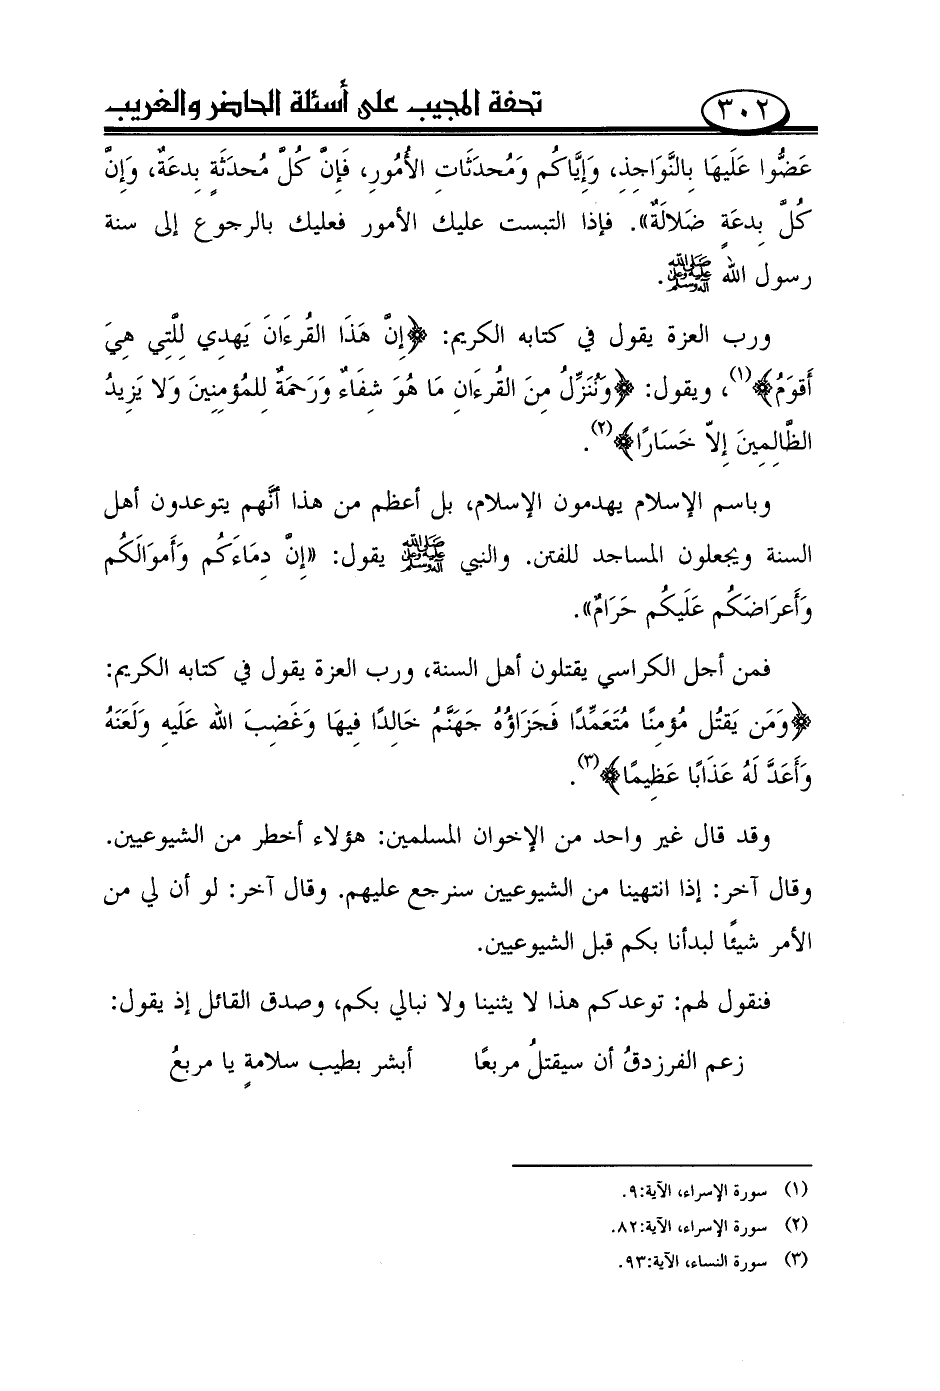 ٣٠٢ تحفة المجيب على أسئلة الحاضر والغريب
عَضُّوا عَلَيهَا بِالنَّوَاجِذِ، وَإِيَّاكُم وَمُحدَثَاتِ الأُمُورِ، فَإِنَّ كُلَّ مُحدَثَةٍ بِدعَةٌ، وَإِنَّ
كُلَّ بِدعَةٍ ضَلالَةٌ». فإذا التبست عليك الأمور فعليك بالرجوع إلى سنة
رسول الله ﷺ.
ورب العزة يقول في كتابه الكريم: ﴿إِنَّ هَذَا القُرءَانَ يَهدِي لِلَّتِي هِيَ
أَقوَمُ﴾(١)، ويقول: ﴿وَنُنَزِّلُ مِنَ القُرءَانِ مَا هُوَ شِفَاءٌ وَرَحمَةٌ لِلمُؤمِنِينَ وَلا يَزِيدُ
الظَّالِمِينَ إِلاّ خَسَارًا﴾(٢).
وباسم الإسلام يهدمون الإسلام، بل أعظم من هذا أنَّهم يتوعدون أهل
السنة ويجعلون المساجد للفتن. والنبي ﷺ يقول: «إِنَّ دِمَاءَكُم وَأَموَالَكُم
وَأَعرَاضَكُم عَلَيكُم حَرَامٌ».
فمن أجل الكراسي يقتلون أهل السنة، ورب العزة يقول في كتابه الكريم:
﴿وَمَن يَقتُل مُؤمِنًا مُتَعَمِّدًا فَجَزَاؤُهُ جَهَنَّمُ خَالِدًا فِيهَا وَغَضِبَ الله عَلَيهِ وَلَعَنَهُ
وَأَعَدَّ لَهُ عَذَابًا عَظِيمًا﴾(٣).
وقد قال غير واحد من الإخوان المسلمين: هؤلاء أخطر من الشيوعيين.
وقال آخر: إذا انتهينا من الشيوعيين سنرجع عليهم. وقال آخر: لو أن لي من
الأمر شيئًا لبدأنا بكم قبل الشيوعيين.
فنقول لهم: توعدكم هذا لا يثنينا ولا نبالي بكم، وصدق القائل إذ يقول:
زعم الفرزدقُ أن سيقتلُ مربعًا أبشر بطيب سلامةٍ يا مربعُ
(١) سورة الإسراء، الآية:٩.
(٢) سورة الإسراء، الآية:٨٢.
(٣) سورة النساء، الآية:٩٣.